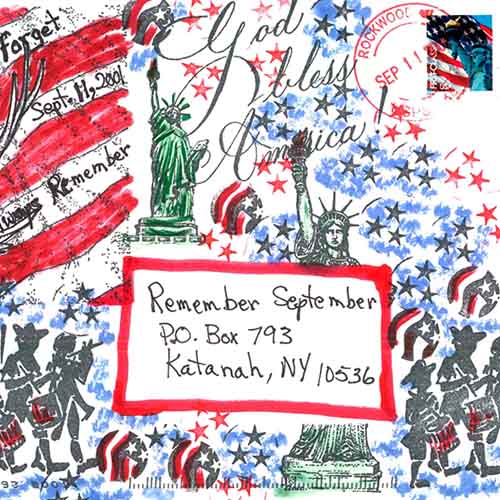 forget
Sept. 11, 2001
Always Remember
God
bless
America!
ROCKWOOD
SEP 11
USA
Remember September
P.O. Box 793
Katanah, NY 10536